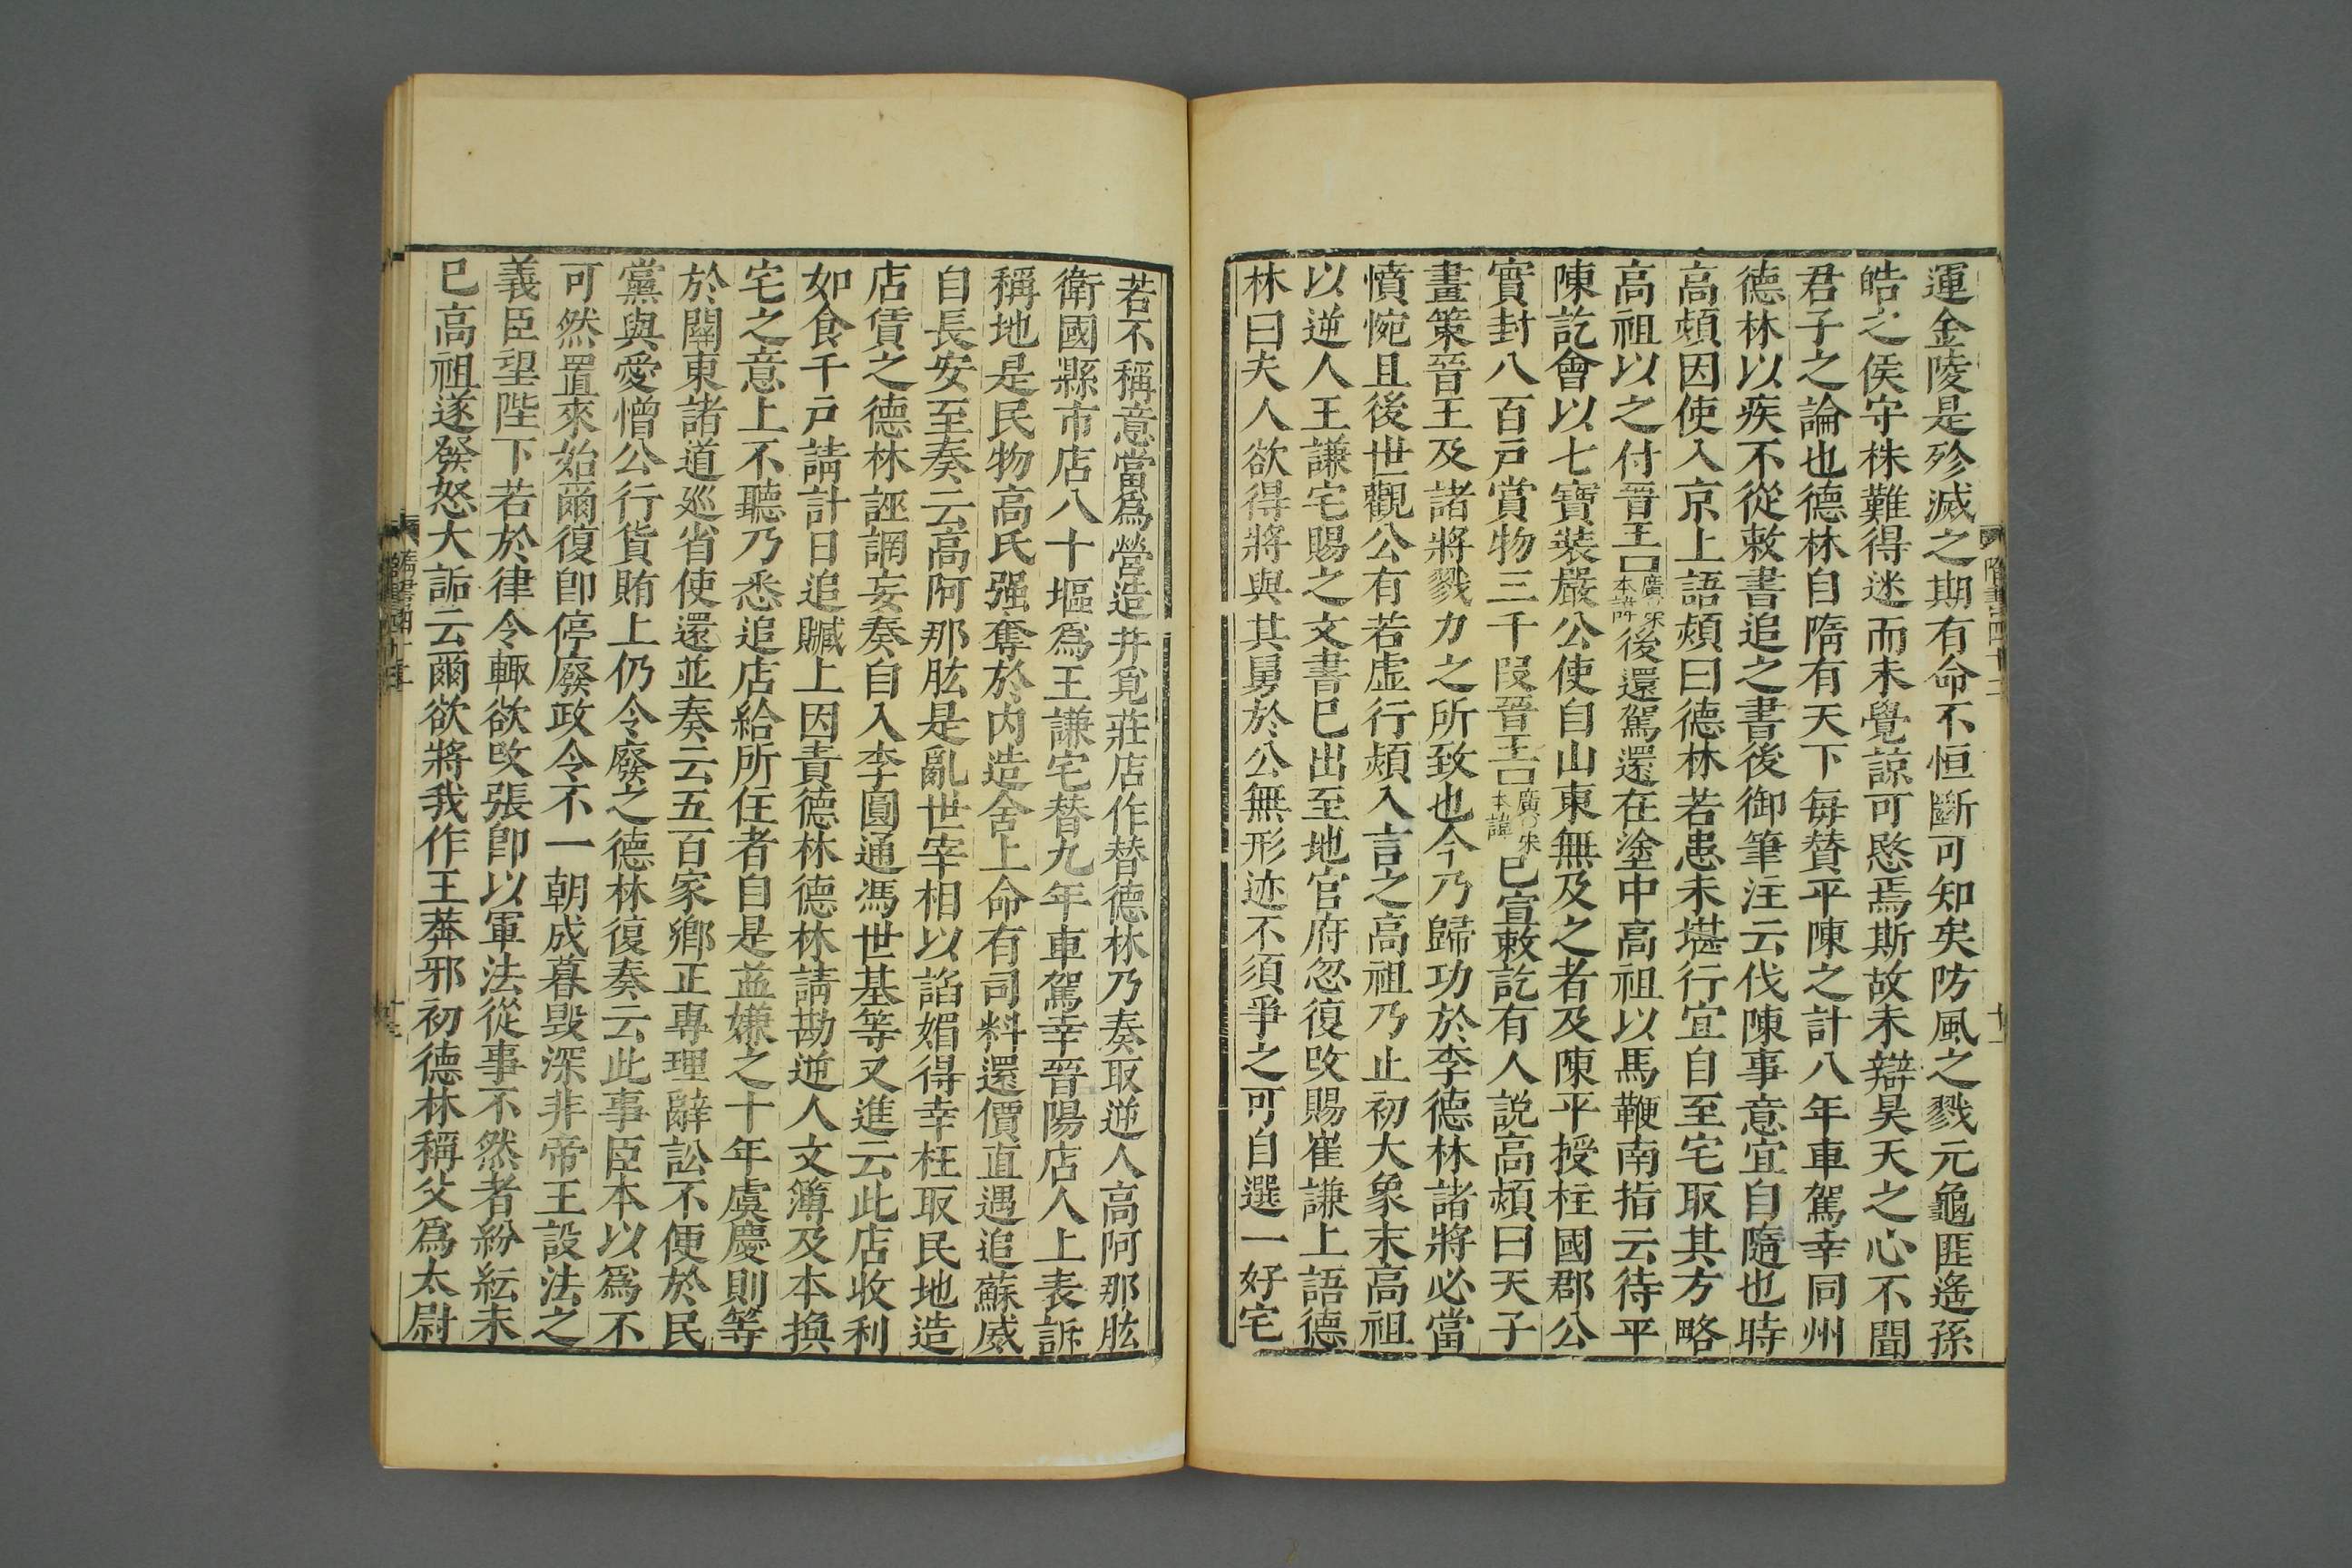 運金陵是殄滅之期有命不恒斷可知矣防風之戮元龜匪遙孫
皓之侯守株難得迷而未覺諒可愍焉斯故未辯昊天之心不聞
君子之論也德林自隋有天下每贊平陳之計八年車駕幸同州
德林以疾不從敕書追之書後御筆注云伐陳事意宜自隨也時
高熲因使入京上語熲曰德林若患未堪行宜自至宅取其方略
高祖以之付晉王後還駕還在塗中高祖以馬鞭南指云待平
陳訖會以七寶裝嚴公使自山東無及之者及陳平授柱國郡公
實封八百戸賞物三千段晉王廣○宋本諱已宣敕訖有人説高熲曰天子
畫策晉王及諸將戮力之所致也今乃歸功於李德林諸將必當
憤惋且後世觀公有若虛行熲入言之高祖乃止初大象末高祖
以逆人王謙宅賜之文書已出至地官府忽復改賜崔謙上語德
林曰夫人欲得將與其舅於公無形迹不須爭之可自選一好宅
若不稱意當爲營造并覓莊店作替德林乃奏取逆人高阿那肱
衛國縣市店八十塸爲王謙宅替九年車駕幸晉陽店人上表訴
稱地是民物高氏强奪於内造舍上命有司料還價直遇追蘇威
自長安至奏云高阿那肱是亂世宰相以諂媚得幸枉取民地造
店賃之德林誣誷妄奏自入李圓通馮世基等又進云此店收利
如食千戸請計日追贓上因責德林德林請勘逆人文簿及本換
宅之意上不聽乃悉追店給所住者自是益嫌之十年虞慶則等
於關東諸道巡省使還並奏云五百家鄉正專理辭訟不便於民
黨與愛憎公行貨賄上仍令廢之德林復奏云此事臣本以爲不
可然置來始爾復卽停廢政令不一朝成暮毀深非帝王設法之
義臣望陛下若於律令輒欲改張卽以軍法從事不然者紛紜未
已高祖遂發怒大詬云爾欲將我作王莽邪初德林稱父爲太尉